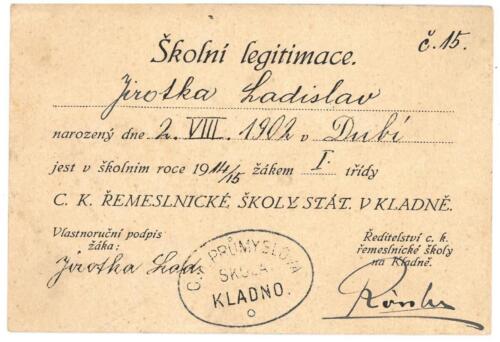 č. 15.
Školní legitimace.
Jirotka Ladislav
narozený dne 2. VIII. 1902 v Dubí
jest v školním roce 1914/15 žákem I. třídy
C. K. ŘEMESLNICKÉ ŠKOLY STÁT. V KLADNĚ.
Vlastnoruční podpis
žáka:
Jirotka Lad.
C. K. PRŮMYSLOVÁ
ŠKOLA
KLADNO.
Ředitelství c. k.
řemeslnické školy
na Kladně.